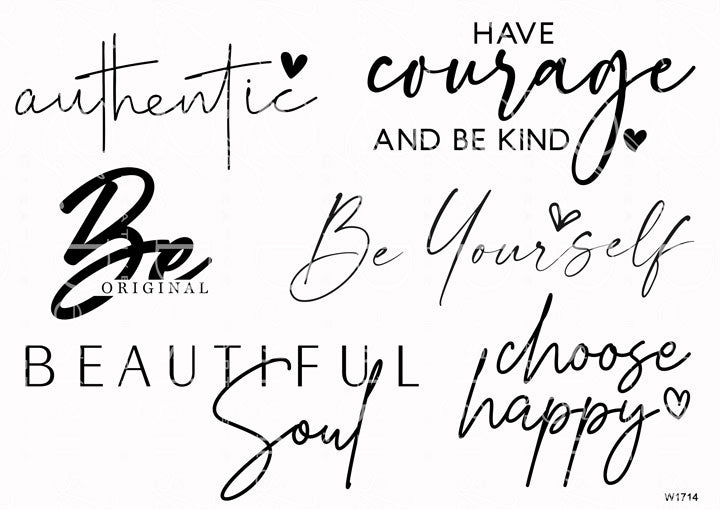 authentic
HAVE
courage
AND BE KIND
Be
ORIGINAL
Be Yourself
BEAUTIFUL
Soul
choose
happy
W1714